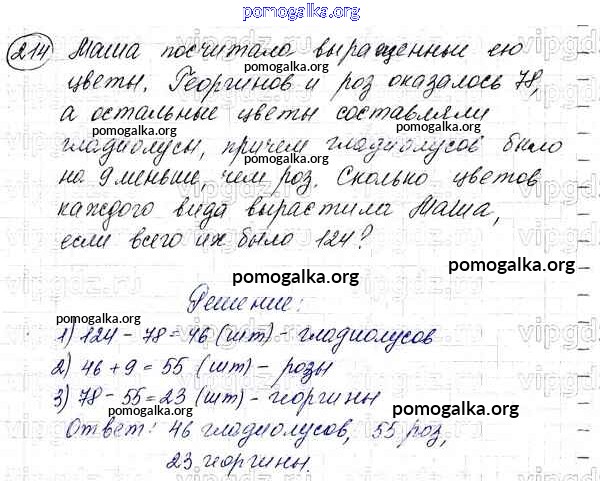 pomogalka.org
214 Маша посчитала выращенные ею
цветы. Георгинов и роз оказалось 78,
а остальные цветы составляли
pomogalka.org pomogalka.org
гладиолусы, причем гладиолусов было
на 9 меньше, чем роз. Сколько цветов
pomogalka.org pomogalka.org
каждого вида вырастила Маша,
если всего их было 124?
pomogalka.org pomogalka.org
Решение:
1) 124 - 78 = 46 (шт) - гладиолусов
pomogalka.org
2) 46 + 9 = 55 (шт) - розы
pomogalka.org
3) 78 - 55 = 23 (шт) - георгины
pomogalka.org pomogalka.org
Ответ: 46 гладиолусов, 55 роз,
23 георгины.
pomogalka.org